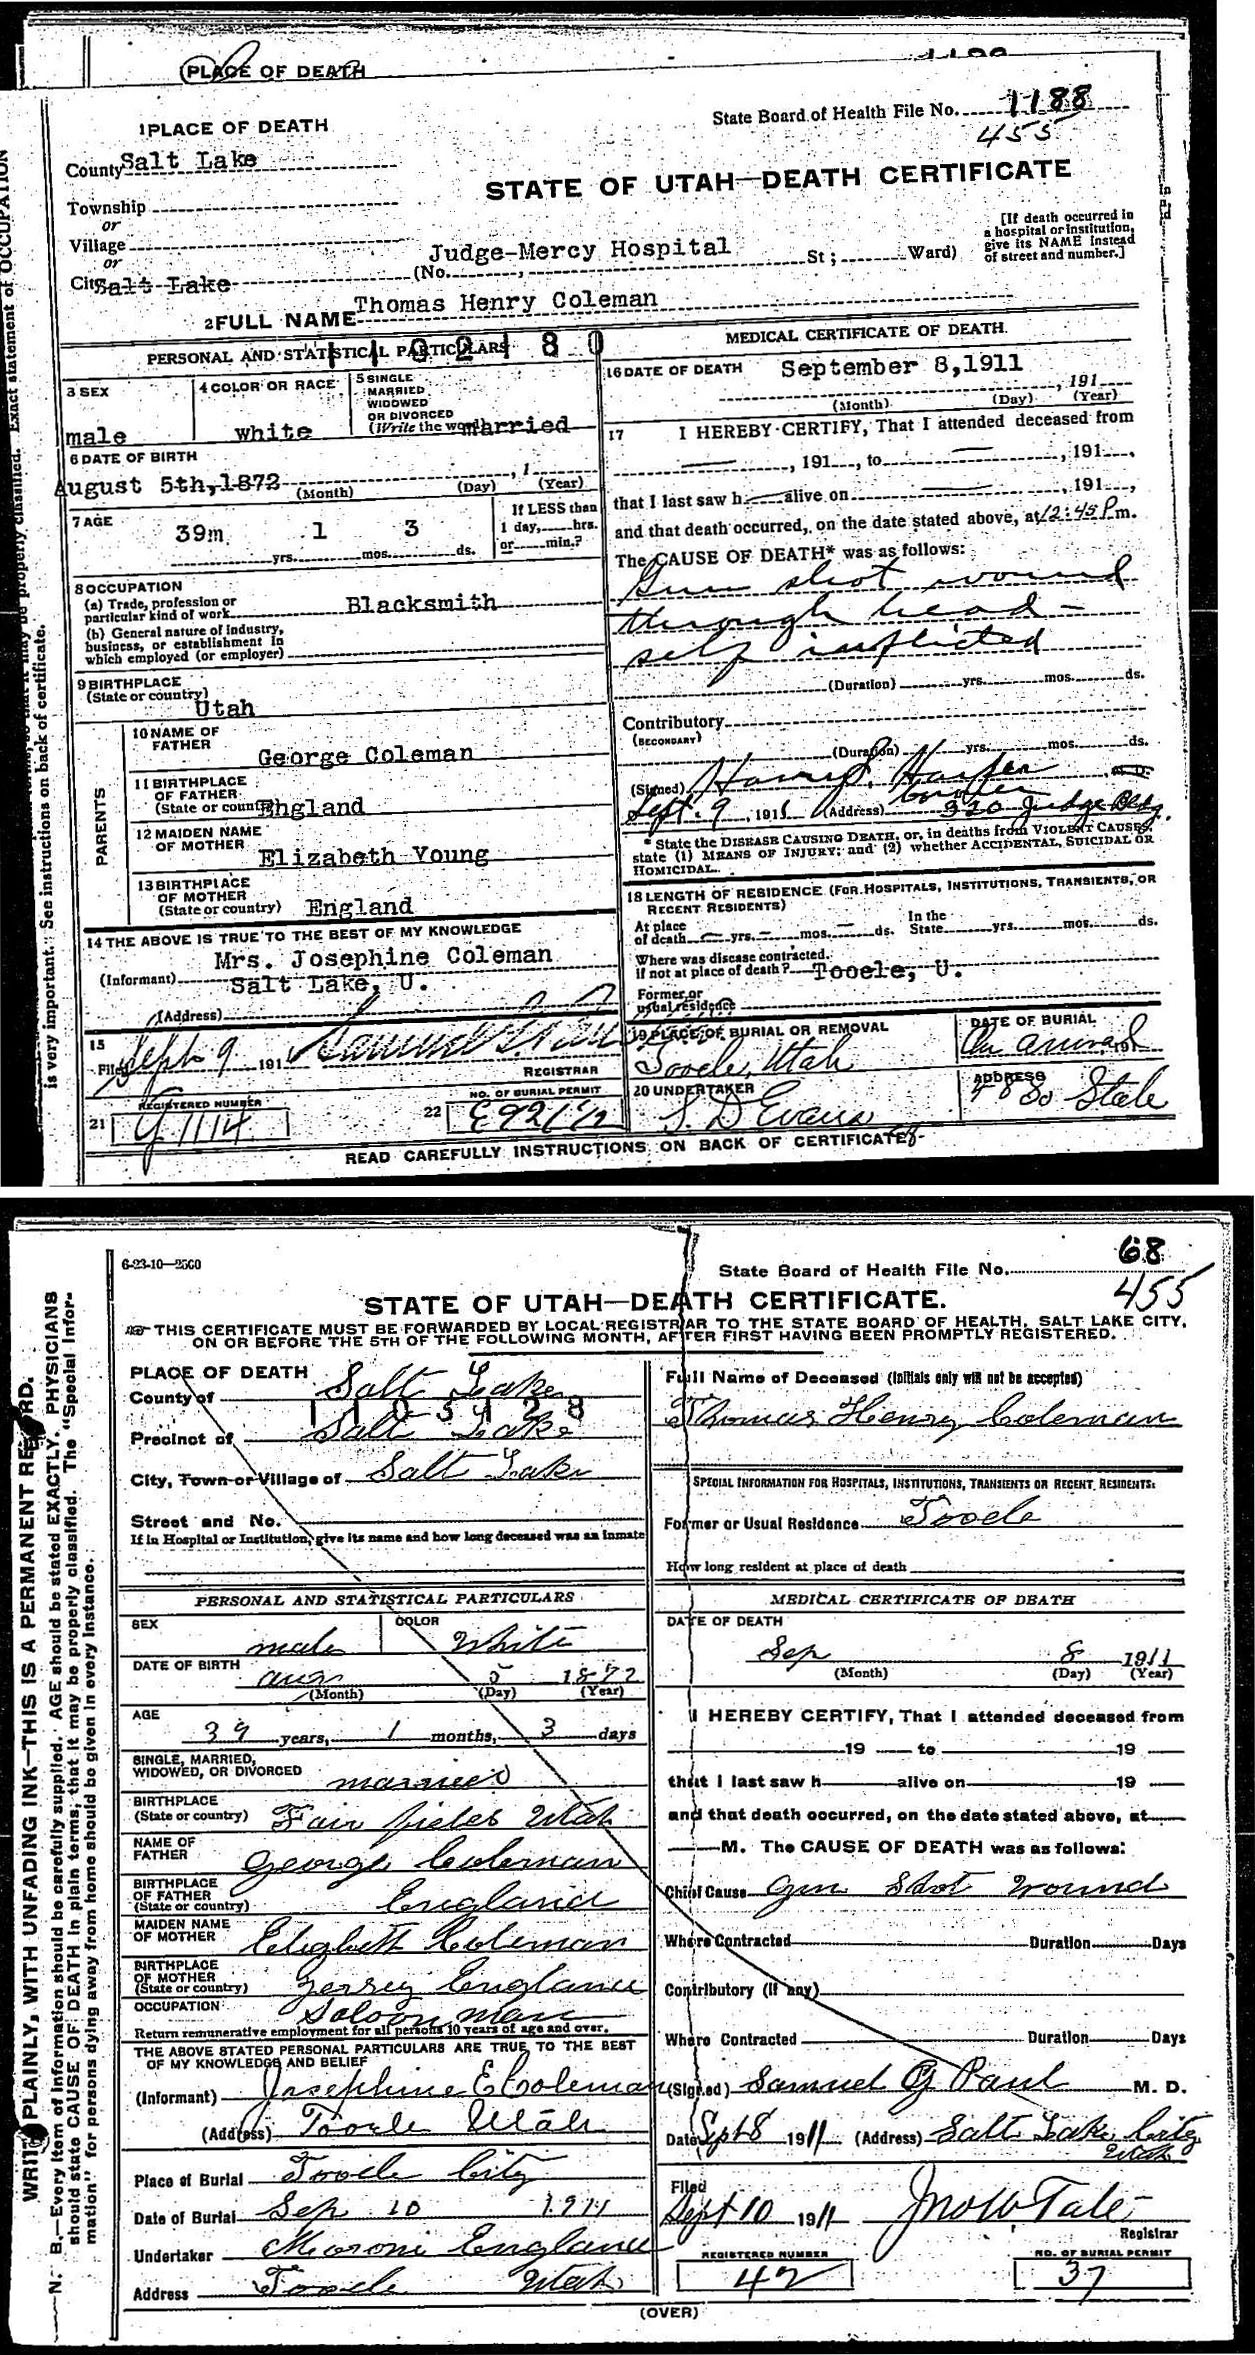 PLACE OF DEATH
State Board of Health File No. 1188
455
1 PLACE OF DEATH
County Salt Lake
STATE OF UTAH—DEATH CERTIFICATE
Township
or
Village
or
City Salt Lake
(No. Judge-Mercy Hospital St; Ward)
[If death occurred in
a hospital or institution,
give its NAME instead
of street and number.]
2 FULL NAME Thomas Henry Coleman
PERSONAL AND STATISTICAL PARTICULARS
80
3 SEX
male
4 COLOR OR RACE
white
5 SINGLE
MARRIED
WIDOWED
OR DIVORCED
(Write the word) married
6 DATE OF BIRTH
August 5th, 1872
(Month) (Day) (Year)
7 AGE
39m yrs. 1 mos. 3 ds.
If LESS than
1 day, hrs.
or min.?
8 OCCUPATION
(a) Trade, profession or
particular kind of work Blacksmith
(b) General nature of industry,
business, or establishment in
which employed (or employer)
9 BIRTHPLACE
(State or country)
Utah
PARENTS
10 NAME OF
FATHER
George Coleman
11 BIRTHPLACE
OF FATHER
(State or country) England
12 MAIDEN NAME
OF MOTHER
Elizabeth Young
13 BIRTHPLACE
OF MOTHER
(State or country) England
14 THE ABOVE IS TRUE TO THE BEST OF MY KNOWLEDGE
(Informant) Mrs. Josephine Coleman
Salt Lake, U.
(Address)
15
Filed Sept 9 191
REGISTRAR
21
REGISTERED NUMBER
22
NO. OF BURIAL PERMIT
MEDICAL CERTIFICATE OF DEATH
16 DATE OF DEATH September 8, 1911
, 191
(Month) (Day) (Year)
17 I HEREBY CERTIFY, That I attended deceased from
, 191 , to , 191 ,
that I last saw h alive on , 191 ,
and that death occurred, on the date stated above, at 12:45 P m.
The CAUSE OF DEATH* was as follows:
Gun shot wound
through head -
self inflicted
(Duration) yrs. mos. ds.
Contributory
(SECONDARY)
(Duration) yrs. mos. ds.
(Signed) Harry S. Harper M. D.
Coroner
Sept. 9, 1911 (Address) 320 Judge Bldg.
* State the DISEASE CAUSING DEATH, or, in deaths from VIOLENT CAUSES,
state (1) MEANS OF INJURY; and (2) whether ACCIDENTAL, SUICIDAL OR
HOMICIDAL.
18 LENGTH OF RESIDENCE (FOR HOSPITALS, INSTITUTIONS, TRANSIENTS, OR
RECENT RESIDENTS)
At place
of death yrs. mos. ds.
In the
State yrs. mos. ds.
Where was disease contracted,
if not at place of death? Tooele, U.
Former or
usual residence
19 PLACE OF BURIAL OR REMOVAL
Tooele, Utah
DATE OF BURIAL
On arrival 191
20 UNDERTAKER
S. D Evans
ADDRESS
State
READ CAREFULLY INSTRUCTIONS ON BACK OF CERTIFICATE
Exact statement of OCCUPATION
is very important. See instructions on back of certificate.
6-23-10—2500
State Board of Health File No. 68
455
STATE OF UTAH—DEATH CERTIFICATE.
THIS CERTIFICATE MUST BE FORWARDED BY LOCAL REGISTRAR TO THE STATE BOARD OF HEALTH, SALT LAKE CITY,
ON OR BEFORE THE 5TH OF THE FOLLOWING MONTH, AFTER FIRST HAVING BEEN PROMPTLY REGISTERED.
PLACE OF DEATH
County of Salt Lake
Precinct of Salt Lake
City, Town or Village of Salt Lake
Street and No.
If in Hospital or Institution, give its name and how long deceased was an inmate
Full Name of Deceased (Initials only will not be accepted)
Thomas Henry Coleman
SPECIAL INFORMATION FOR HOSPITALS, INSTITUTIONS, TRANSIENTS OR RECENT RESIDENTS:
Former or Usual Residence Tooele
How long resident at place of death
PERSONAL AND STATISTICAL PARTICULARS
SEX male COLOR White
DATE OF BIRTH Aug 5 1872
(Month) (Day) (Year)
AGE
39 years, 1 months, 3 days
SINGLE, MARRIED,
WIDOWED, OR DIVORCED married
BIRTHPLACE
(State or country) Fairfield Utah
NAME OF
FATHER George Coleman
BIRTHPLACE
OF FATHER
(State or country) England
MAIDEN NAME
OF MOTHER Elizbeth Coleman
BIRTHPLACE
OF MOTHER
(State or country) Jersey England
OCCUPATION Saloon man
Return remunerative employment for all persons 10 years of age and over.
THE ABOVE STATED PERSONAL PARTICULARS ARE TRUE TO THE BEST
OF MY KNOWLEDGE AND BELIEF
(Informant) Josephine E Coleman
(Address) Tooele Utah
Place of Burial Tooele City
Date of Burial Sep 10 1911
Undertaker Moroni England
Address Tooele Utah
MEDICAL CERTIFICATE OF DEATH
DATE OF DEATH
Sep 8 1911
(Month) (Day) (Year)
I HEREBY CERTIFY, That I attended deceased from
19 to 19
that I last saw h alive on 19
and that death occurred, on the date stated above, at
M. The CAUSE OF DEATH was as follows:
Chief Cause Gun Shot wound
Where Contracted Duration Days
Contributory (if any)
Where Contracted Duration Days
(Signed) Samuel G Paul M. D.
Date Sept 8 1911 (Address) Salt Lake City
Utah
Filed
Sept 10 1911 Jno W Tate
Registrar
REGISTERED NUMBER
42
NO. OF BURIAL PERMIT
37
(OVER)
WRITE PLAINLY, WITH UNFADING INK—THIS IS A PERMANENT RECORD.
N. B.—Every item of information should be carefully supplied. AGE should be stated EXACTLY. PHYSICIANS
should state CAUSE OF DEATH in plain terms, that it may be properly classified. The "Special Infor-
mation" for persons dying away from home should be given in every instance.